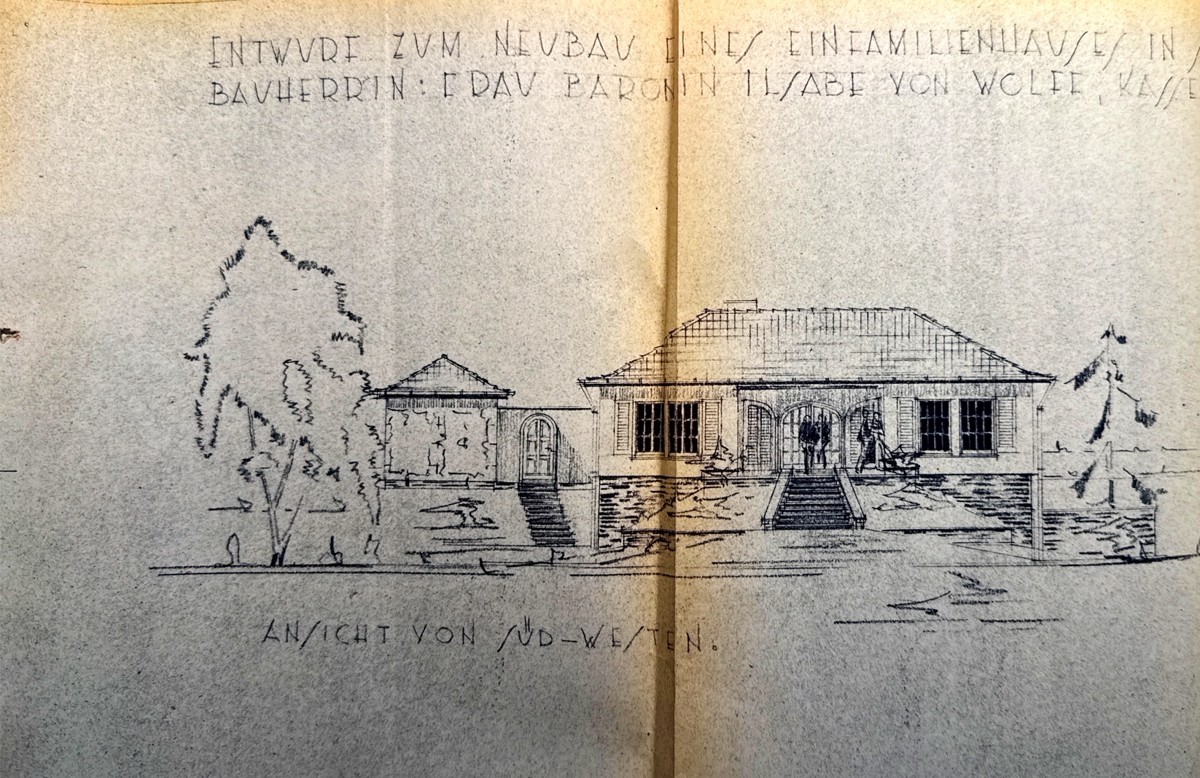 ENTWURF ZUM NEUBAU EINES EINFAMILIENHAUSES IN
BAUHERRIN: FRAU BARONIN ILSABE VON WOLFF, KASSE
ANSICHT VON SÜD-WESTEN.